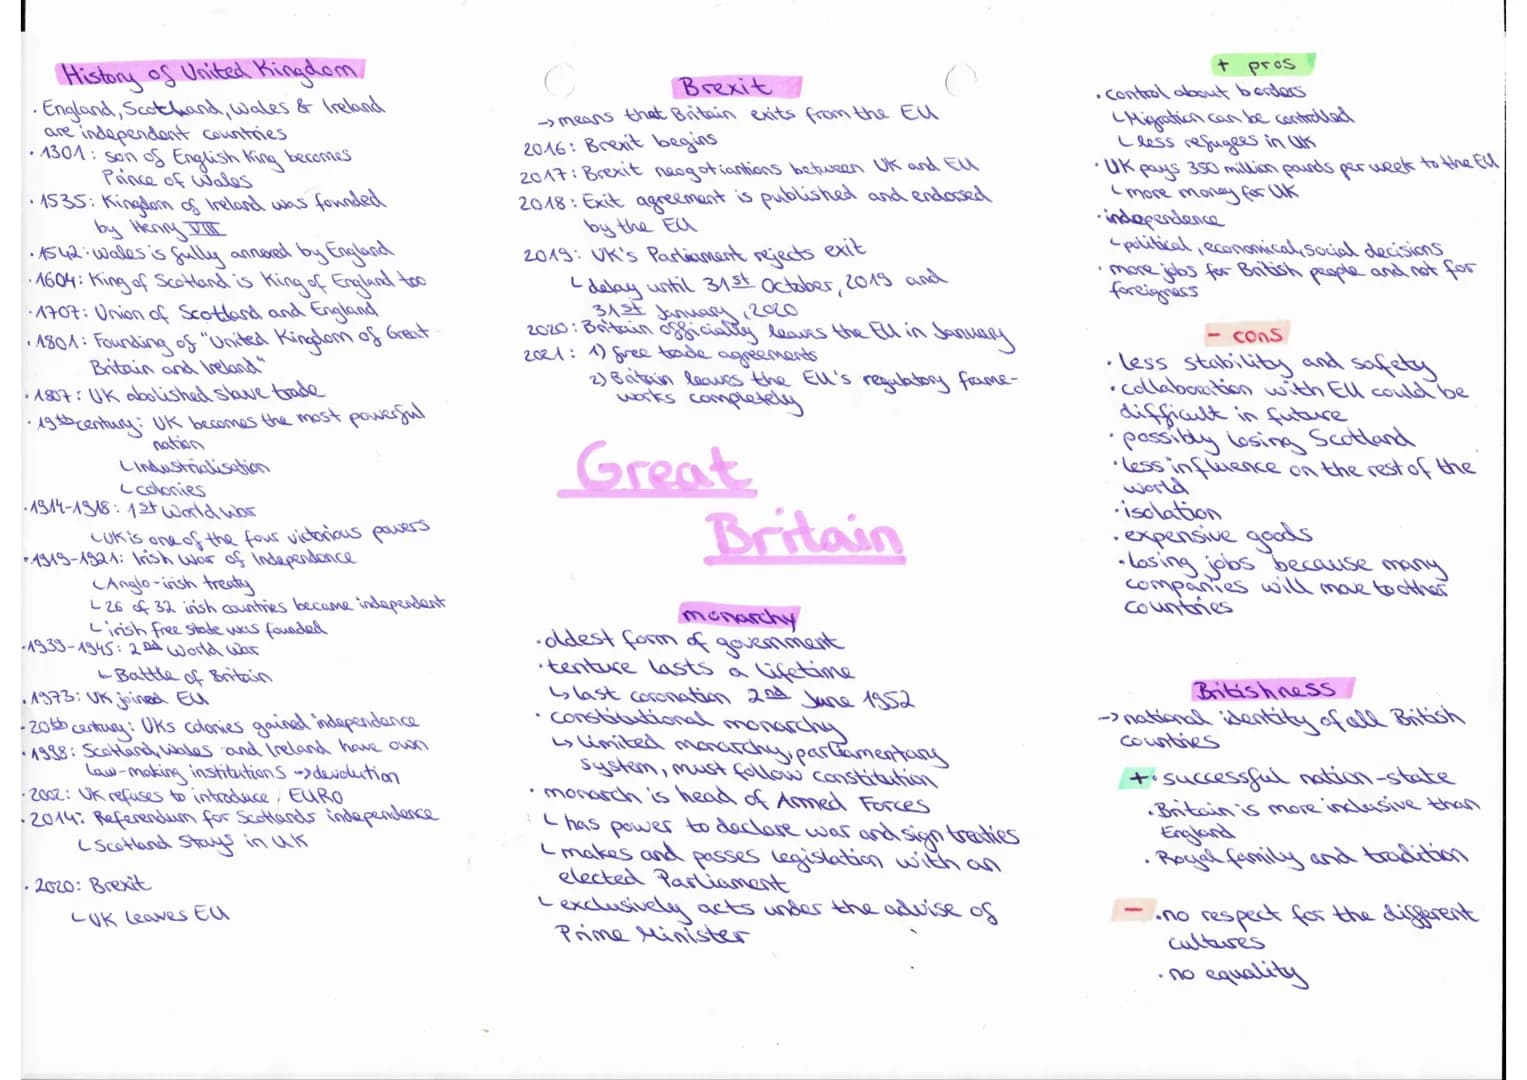 History of United Kingdom
· England, Scotland, Wales & Ireland
are independent countries
· 1301: son of English King becomes
Prince of Wales
· 1535: Kingdom of Ireland was founded
by Henry VIII
· 1542: Wales is fully annexed by England
· 1604: King of Scotland is King of England too
· 1707: Union of Scotland and England
· 1801: Founding of "United Kingdom of Great
Britain and Ireland"
· 1807: UK abolished slave trade
· 19th century: UK becomes the most powerful
nation
└ Industrialisation
└ colonies
· 1914-1918: 1st World War
└ UK is one of the four victorious powers
· 1919-1921: Irish War of Independence
└ Anglo-irish treaty
└ 26 of 32 irish countries became independent
└ irish free state was founded
· 1939-1945: 2nd World War
└ Battle of Britain
· 1973: UK joined EU
· 20th century: UKs colonies gained independence
· 1998: Scotland, Wales and Ireland have own
law-making institutions -> devolution
· 2002: UK refuses to introduce EURO
· 2014: Referendum for Scotlands independence
└ Scotland stays in UK
· 2020: Brexit
└ UK leaves EU
Brexit
-> means that Britain exits from the EU
2016: Brexit begins
2017: Brexit neogotiantions between UK and EU
2018: Exit agreement is published and endorsed
by the EU
2019: UK's Parliament rejects exit
└ delay until 31st October, 2019 and
31st January, 2020
2020: Britain officially leaves the EU in January
2021: 1) free trade agreements
2) Britain leaves the EU's regulatory frame-
works completely
Great
Britain
monarchy
· oldest form of government
· tenture lasts a lifetime
↳ last coronation 2nd June 1952
· constitutional monarchy
↳ limited monarchy, parliamentary
system, must follow constitution
· monarch is head of Armed Forces
└ has power to declare war and sign treaties
└ makes and passes legislation with an
elected Parliament
└ exclusively acts under the advise of
Prime Minister
+ pros
· control about borders
└ Migration can be controlled
└ less refugees in UK
· UK pays 350 million pounds per week to the EU
└ more money for UK
· independence
└ political, economical, social decisions
· more jobs for British people and not for
foreigness
- cons
· less stability and safety
· collaboration with EU could be
difficult in future
· possibly losing Scotland
· less influence on the rest of the
world
· isolation
· expensive goods
· losing jobs because many
companies will move to other
countries
Britishness
-> national identity of all British
countries
+ · successful nation-state
· Britain is more inclusive than
England
· Royal family and tradition
- · no respect for the different
cultures
· no equality